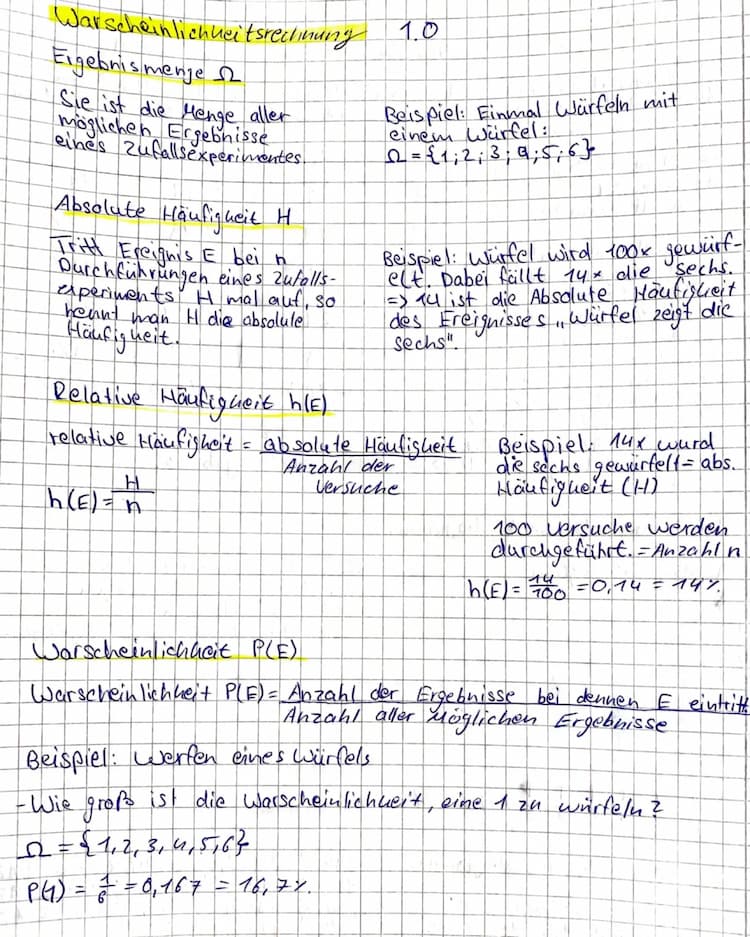 Warscheinlichkeitsrechnung 1.0
Ergebnismenge Ω
Sie ist die Menge aller
möglichen Ergebnisse
eines Zufallsexperimentes
Beispiel: Einmal Würfeln mit
einem Würfel:
Ω = {1; 2; 3; 4; 5; 6}
Absolute Häufigkeit H
Tritt Ereignis E bei n
Durchführungen eines Zufalls-
experiments H mal auf, so
nennt man H die absolute
Häufigkeit.
Beispiel: Würfel wird 100x gewürf-
elt. Dabei fällt 14x die sechs.
=> 14 ist die Absolute Häufigkeit
des Ereignisses „Würfel zeigt die
sechs".
Relative Häufigkeit h(E)
relative Häufigkeit = absolute Häufigkeit
Anzahl der
Versuche
h(E) = H/n
Beispiel: 14x wurd
die sechs gewürfelt = abs.
Häufigkeit (H)
100 Versuche werden
durchgeführt. = Anzahl n
h(E) = 14/100 = 0,14 = 14%
Warscheinlichkeit P(E)
Warscheinlichkeit P(E) = Anzahl der Ergebnisse bei dennen E eintritt
Anzahl aller Möglichen Ergebnisse
Beispiel: Werfen eines Würfels
- Wie groß ist die Warscheinlichkeit, eine 1 zu würfeln?
Ω = {1, 2, 3, 4, 5, 6}
P(1) = 1/6 = 0,167 = 16,7%.